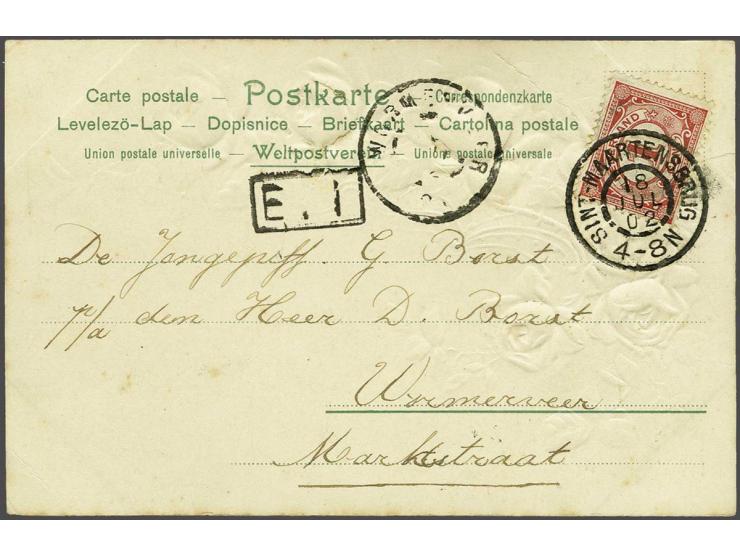 Carte postale — Postkarte — Correspondenzkarte
Levelezö-Lap — Dopisnice — Briefkaart — Cartolina postale
Union postale universelle — Weltpostverein — Unione postale universale
E. 1
SINT-MAARTENSBRUG
18
JUL
02
4-8N
De Jongejuff. G Borst
p/a den Heer D. Borst
Wormerveer
Marktstraat